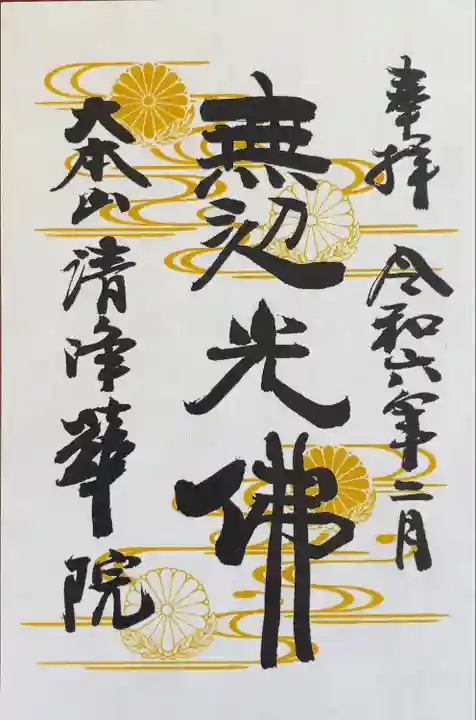 奉拝 令和六年二月
無辺光佛
大本山 清浄華院